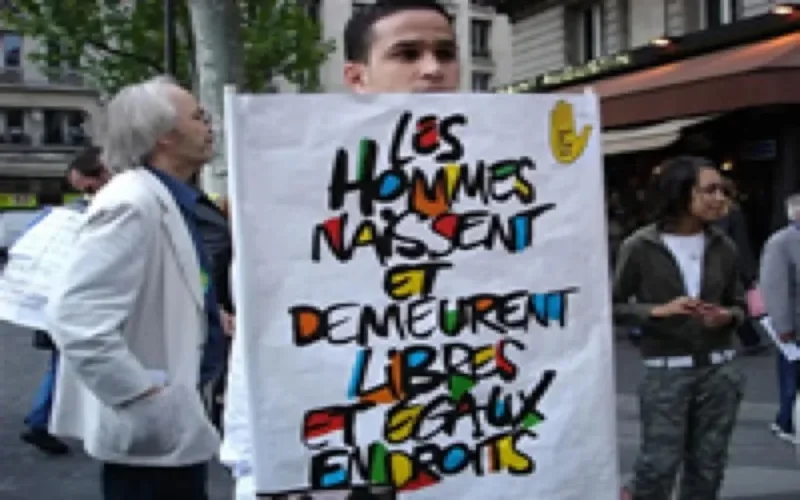 LES
HOMMES
NAISSENT
ET
DEMEURENT
LIBRES
ET EGAUX
EN DROITS